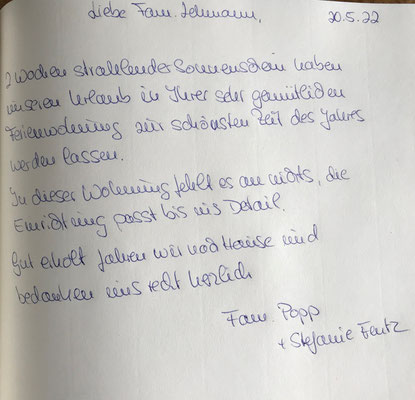 Liebe Fam. Lehmann, 20.5.22
2 Wochen strahlender Sonnenschein haben
unseren Urlaub in Ihrer sehr gemütlichen
Ferienwohnung zur schönsten Zeit des Jahres
werden lassen.
In dieser Wohnung fehlt es an nichts, die
Einrichtung passt bis ins Detail.
Gut erholt fahren wir nach Hause und
bedanken uns recht herzlich
Fam. Popp
+ Stefanie Fentz